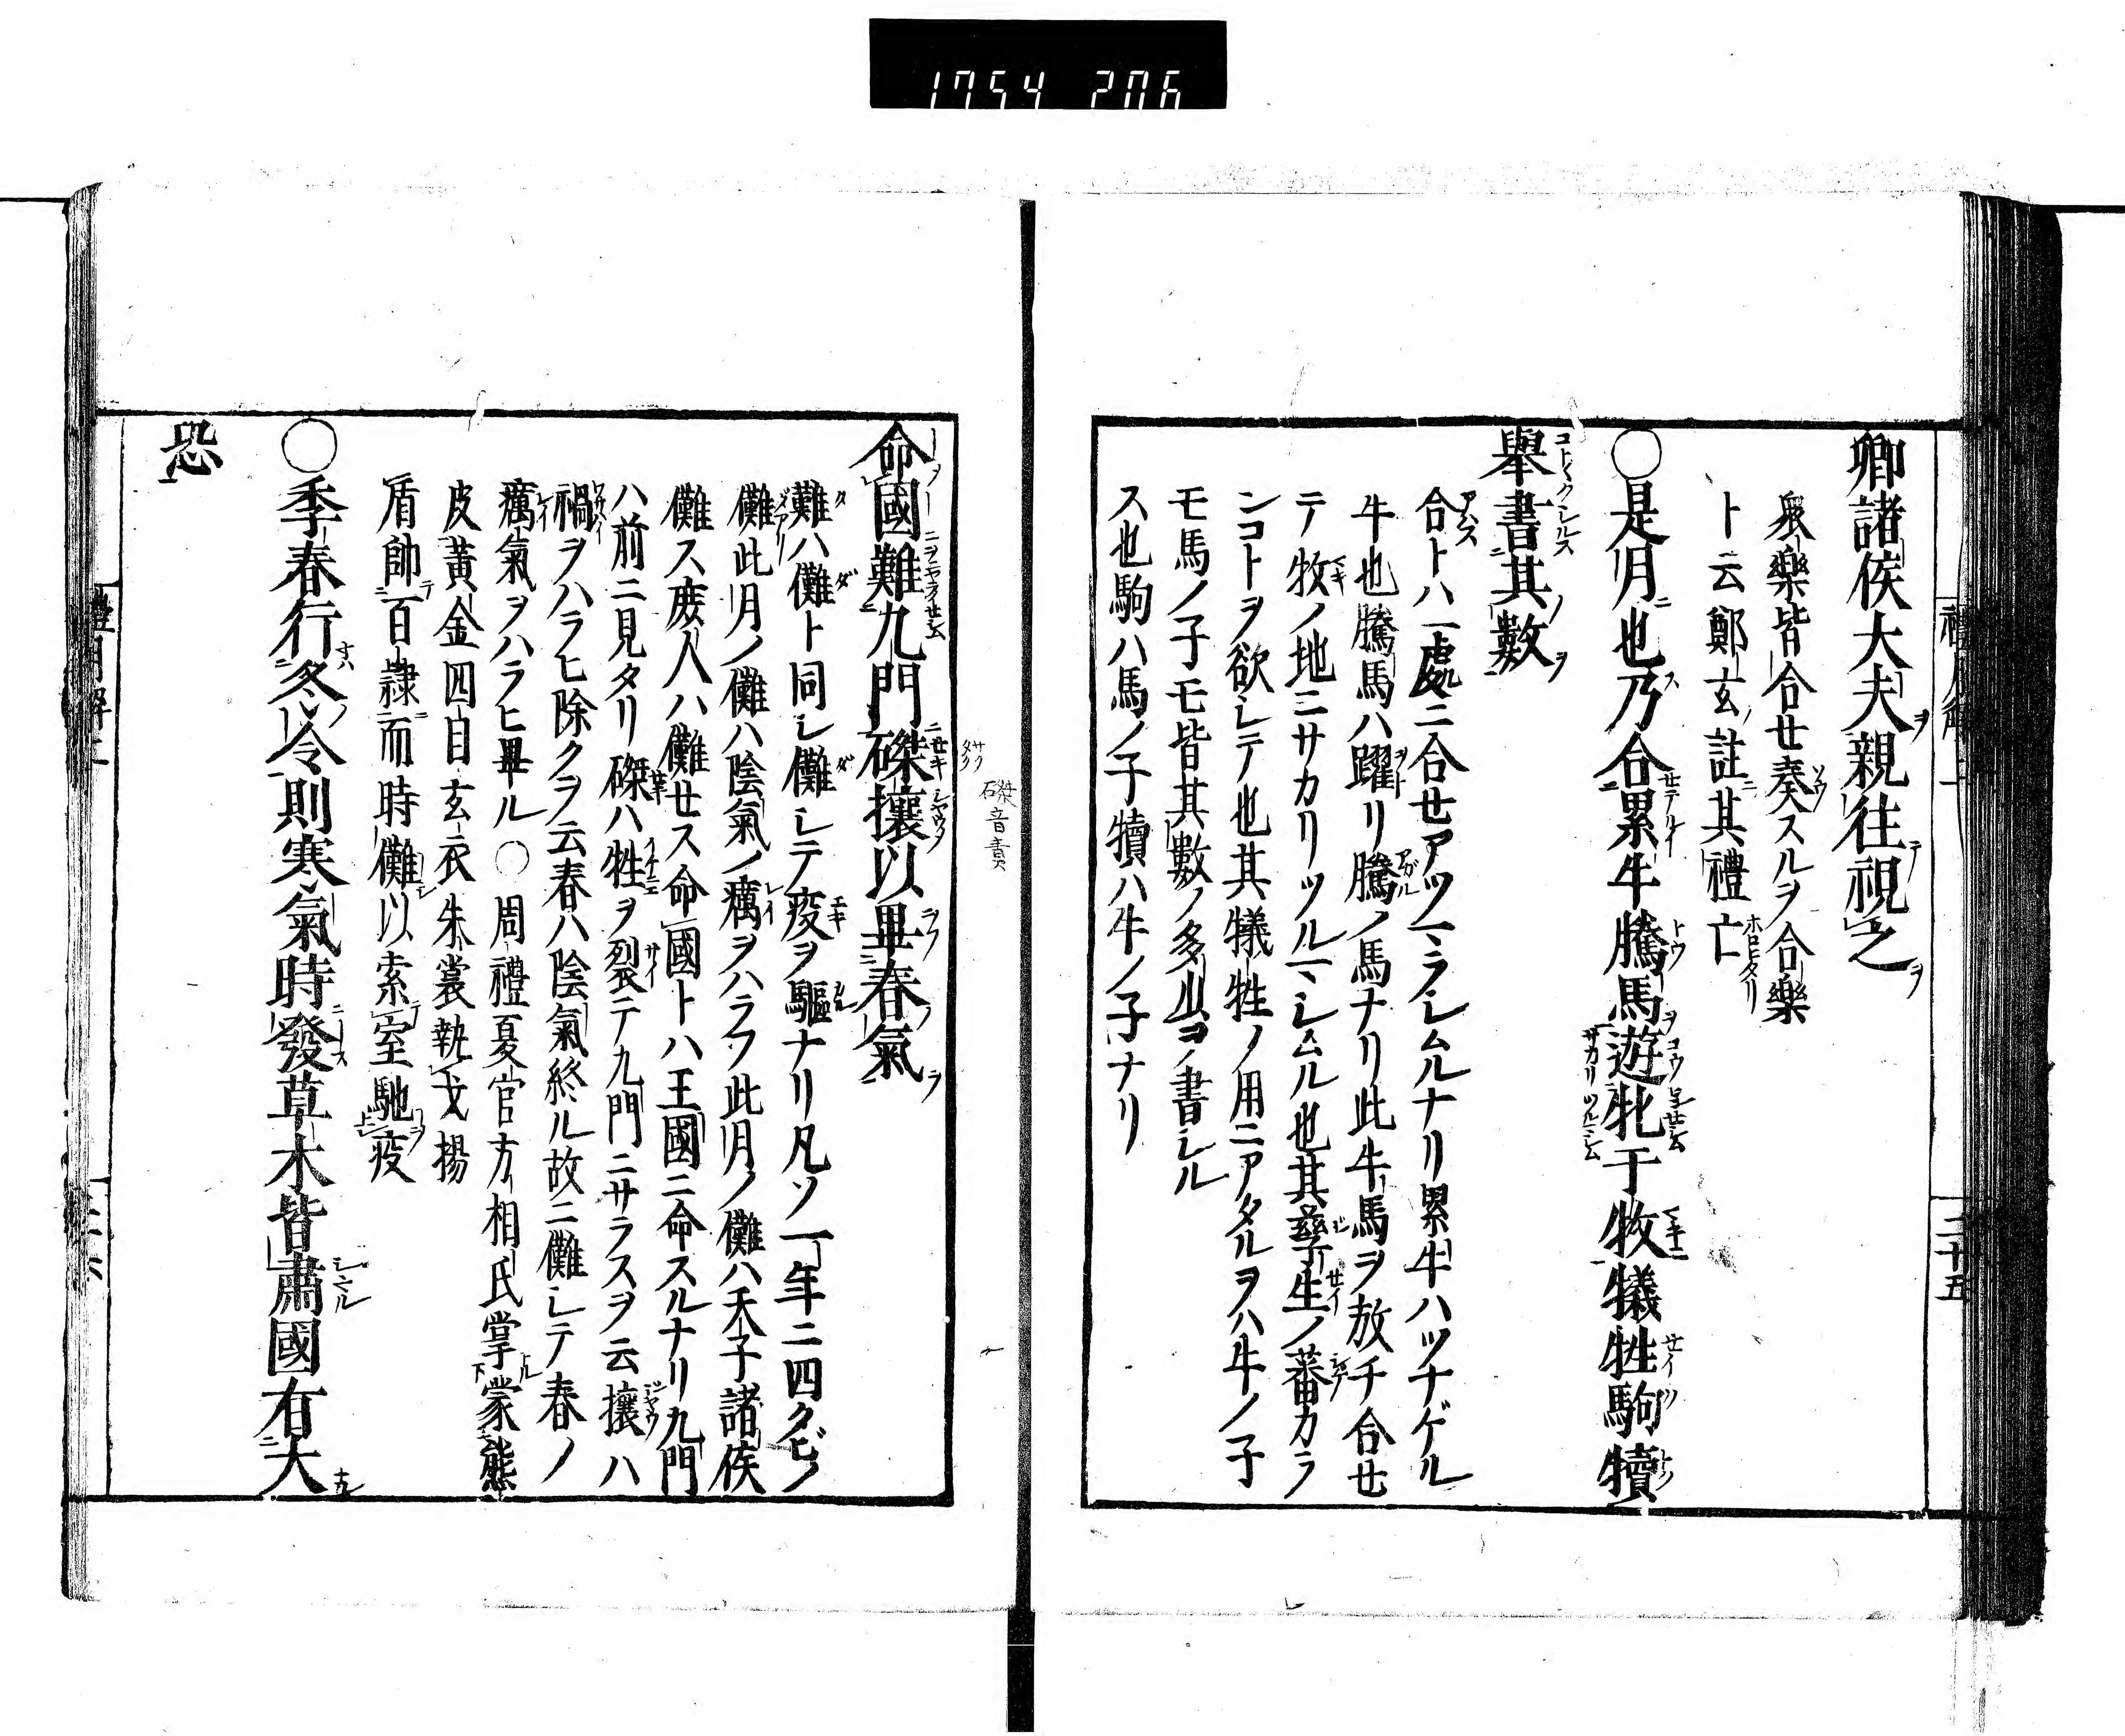 1754 206
卿諸侯大夫親往視之
衆樂皆合セ奏スルヲ合樂
ト云鄭玄註其禮亡
〇是月也乃合累牛騰馬遊牝于牧犠牲駒犢
舉書其數
合トハ一處ニ合セアツマラシムルナリ累牛ハツナゲル
牛也騰馬ハ躍リ騰ノ馬ナリ此牛馬ヲ放チ合セ
テ牧ノ地ニサカリツルマシムル也其孳生ノ蕃カラ
ンコトヲ欲シテ也其犠牲ノ用ニアタルヲハ牛ノ子
モ馬ノ子モ皆其數ノ多少ヲ書シル
ス也駒ハ馬ノ子犢ハ牛ノ子ナリ
二十五
磔音責
命國難九門磔攘以畢春氣
難ハ儺ト同シ儺シテ疫ヲ驅ナリ凡ソ一年ニ四タビノ
儺此月ノ儺ハ陰氣ノ癘ヲハラフ此月ノ儺ハ天子諸侯
儺ス庻人ハ儺セス命國トハ王國ニ命スルナリ九門
ハ前ニ見タリ磔ハ牲ヲ裂テ九門ニサラスヲ云攘ハ
禍ヲハラヒ除クヲ云春ハ陰氣終ル故ニ儺シテ春ノ
癘氣ヲハラヒ畢ル〇周禮夏官方相氏掌蒙熊
皮黃金四目玄衣朱裳執戈揚
盾帥百隷而時儺以索室馳疫
〇季春行冬令則寒氣時發草木皆肅國有大
恐